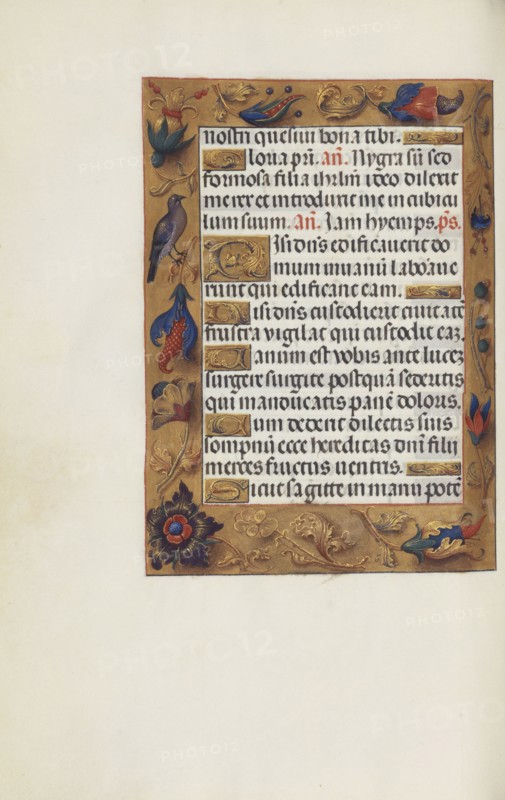 nostri quesiui bona tibi.
loria pri. añ. Nygra sū sed
formosa filia ihrlm ideo dilexit
me rex et introduxit me in cubicu
lum suum. Añ. Jam hyemps. ps.
Nisi dn̄s edificauerit do
mum inuanū laboraue
runt qui edificant eam.
Nisi dn̄s custodierit ciuitatē
frustra vigilat qui custodit eaꝫ.
Vanum est vobis ante luceꝫ
surgere surgite postquā sederitis
qui manducatis panē doloris.
Cum dederit dilectis suis
sompnū ecce hereditas dn̄i filij
merces fructus uentris.
Sicut sagitte in manu potē
PHOTO12